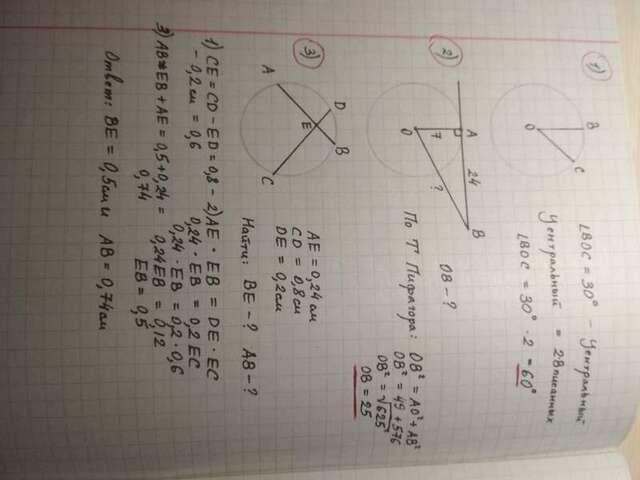 1)
O
B
C
∠BOC = 30° – Центральный
Центральный = 2 Вписанных
∠BOC = 30° · 2 = 60°
2)
O
7
A
24
B
?
OB – ?
По Т Пифагора: OB² = AO² + AB²
OB² = 49 + 576
OB² = √625
OB = 25
3)
A
D
E
B
C
AE = 0,24 см
CD = 0,8 см
DE = 0,2 см
Найти: BE – ? AB – ?
1) CE = CD – ED = 0,8 –
– 0,2 см = 0,6
2) AE · EB = DE · EC
0,24 · EB = 0,2 EC
0,24 · EB = 0,2 · 0,6
0,24 EB = 0,12
EB = 0,5
3) AB = EB + AE = 0,5 + 0,24 =
0,74
Ответ: BE = 0,5 см и AB = 0,74 см